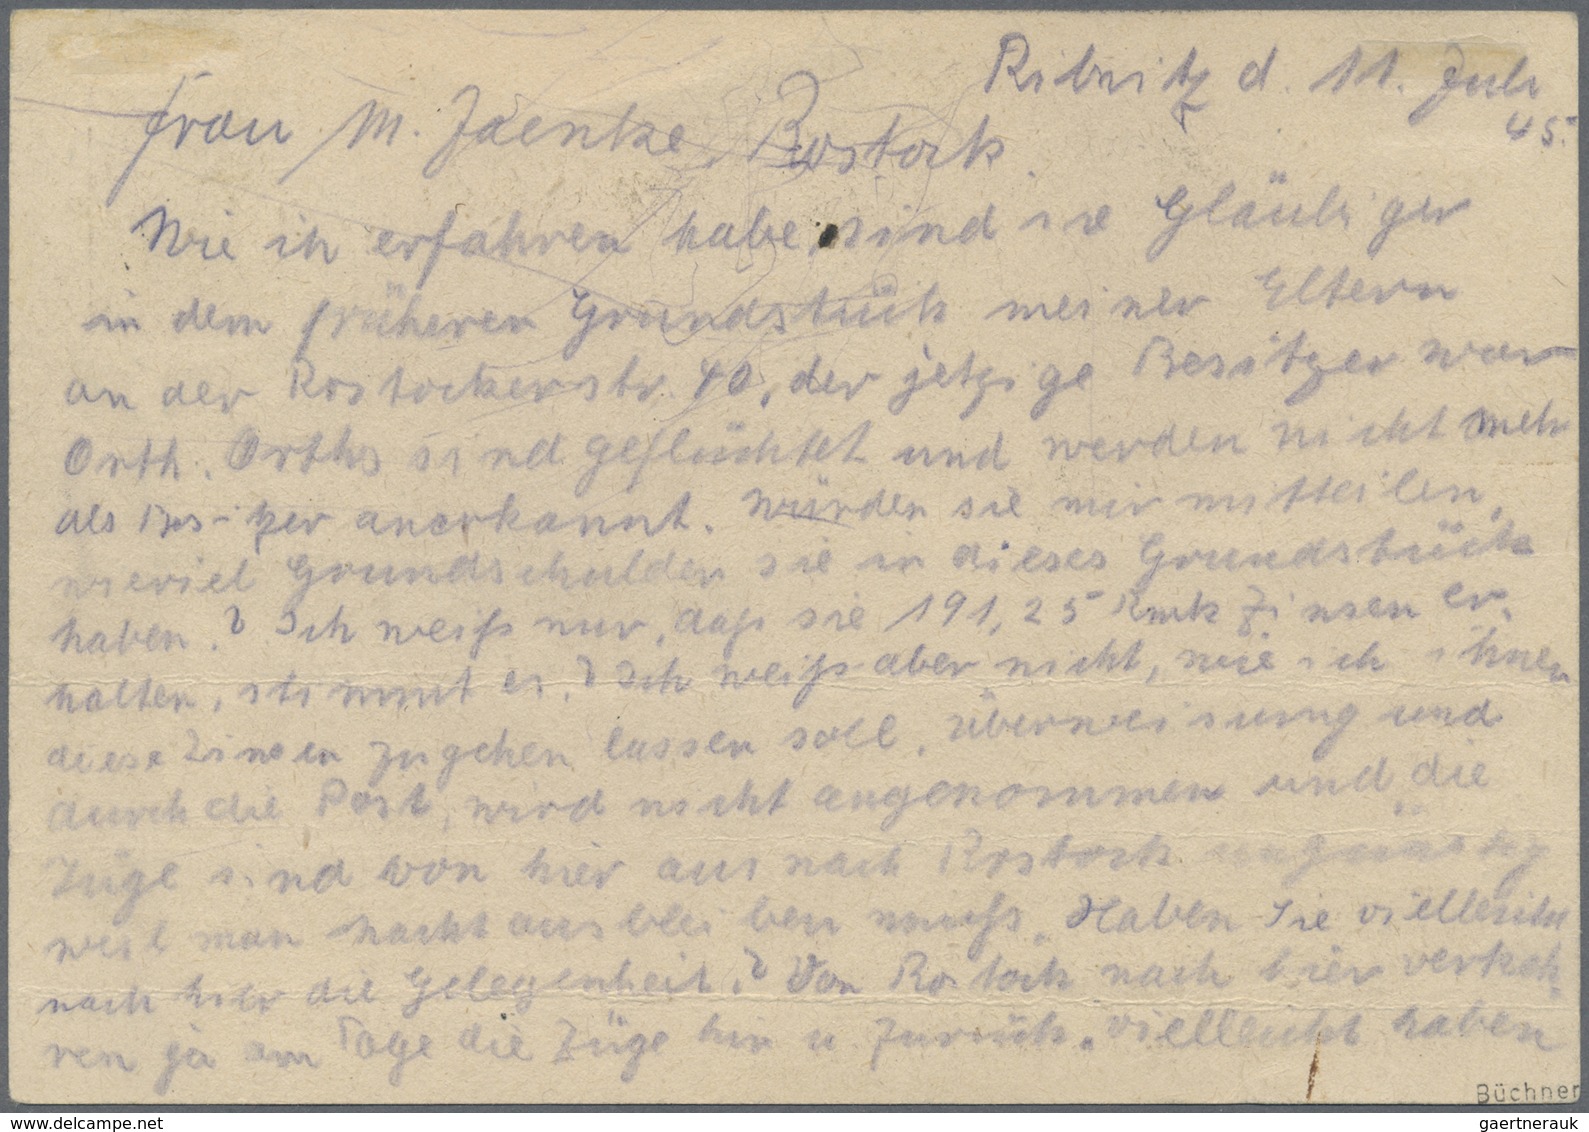 Ribnitz d. 11. Juli
45.
Frau M. Jaenke, Rostock.
Wie ich erfahren habe, sind sie Gläubiger
in dem früheren Grundstück meiner Eltern
an der Rostockerstr. 40, der jetzige Besitzer war
Orth. Orths sind geflüchtet und werden nicht mehr
als Bes-itzer anerkannt. Würden sie mir mitteilen,
wieviel Grundschulden sie in dieses Grundstück
haben.? Ich weiß nur, daß sie 191,25 Rmk Zinsen er-
halten, stimmt es.? Ich weiß aber nicht, wie ich ihnen
diese Zinsen zugehen lassen soll, Überweisung und
durch die Post, wird nicht angenommen und die
Züge sind von hier aus nach Rostock ungünstig
weil man Nacht ausbleiben muß. Haben Sie vielleicht
nach hier die Gelegenheit.? Von Rostock nach hier verkeh-
ren ja am Tage die Züge hin u. zurück. vielleicht haben
Büchner
www.delcampe.net
gaertnerauk